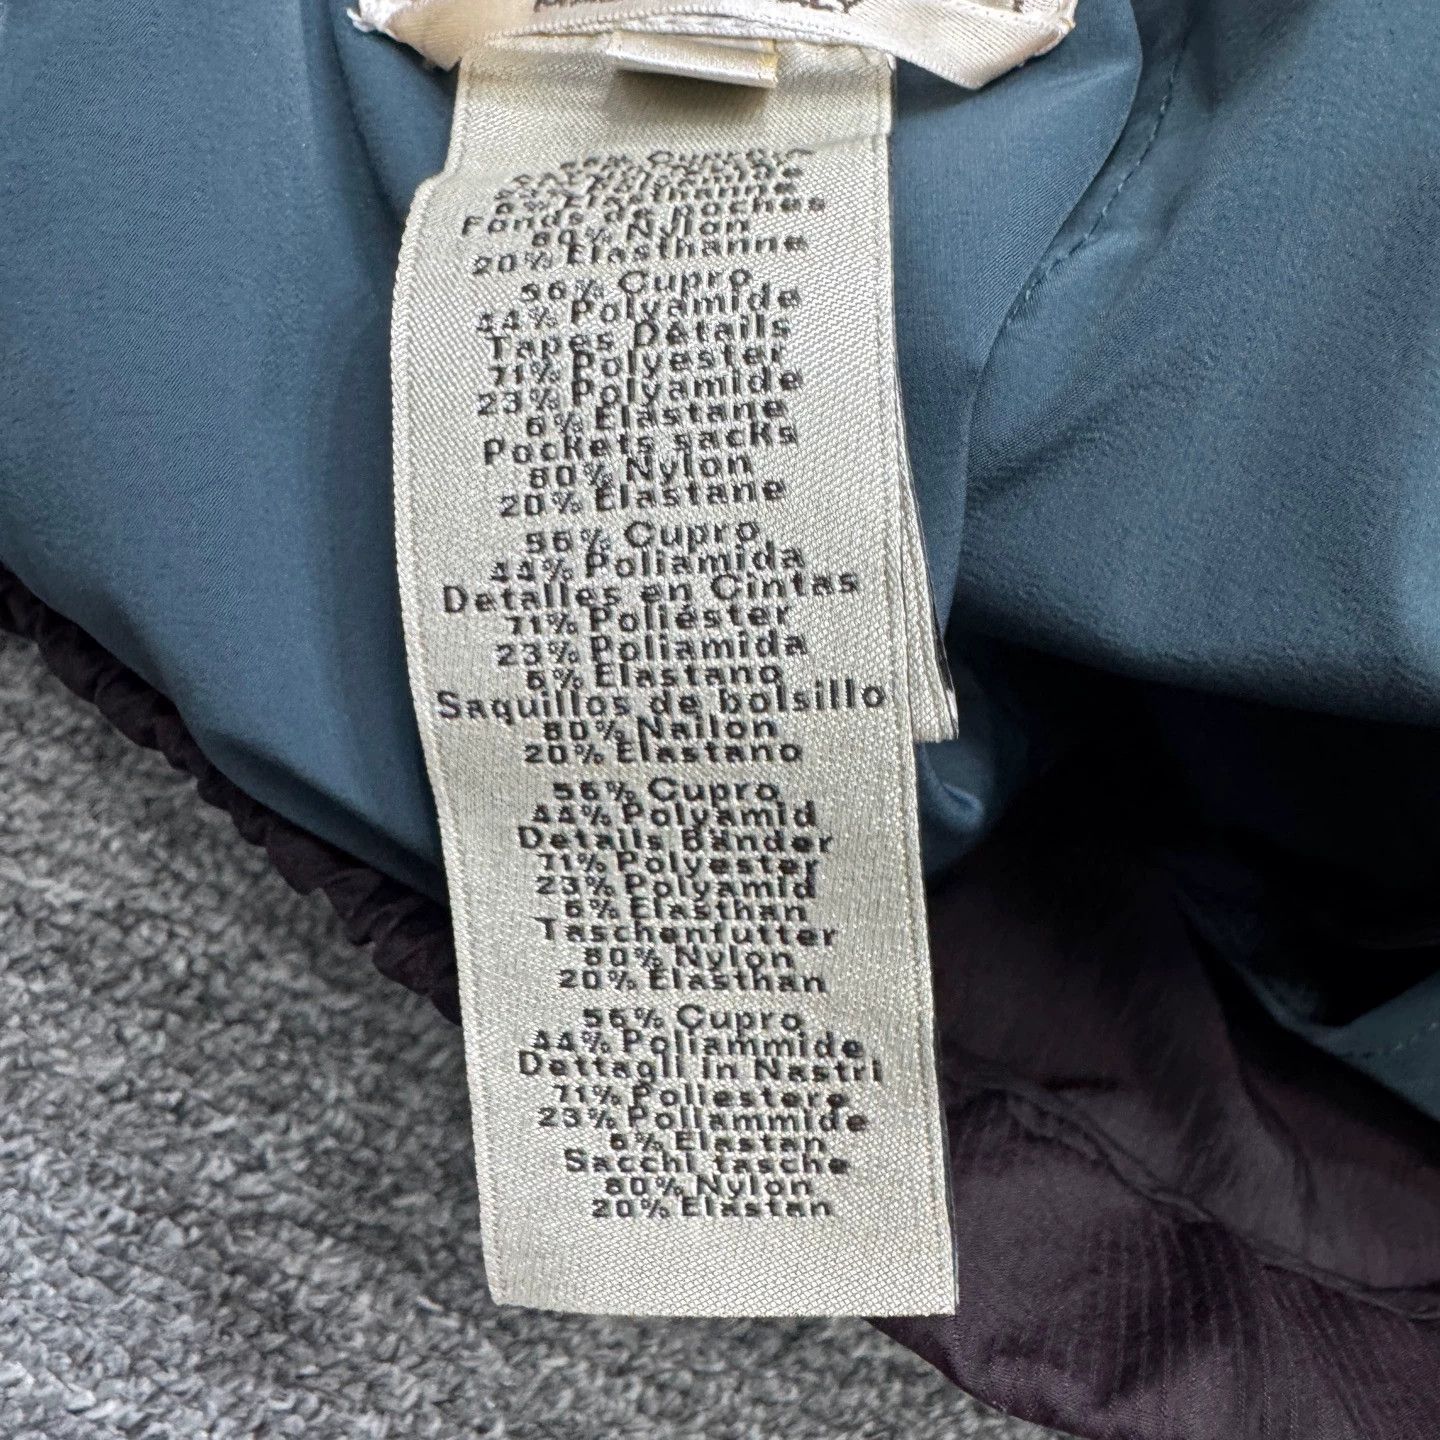 56% Cupro
44% Polyamide
6% Elasthanne
Fonds de Poches
80% Nylon
20% Elasthanne
56% Cupro
44% Polyamide
Tapes Details
71% Polyester
23% Polyamide
6% Elastane
Pockets sacks
80% Nylon
20% Elastane
56% Cupro
44% Poliamida
Detalles en Cintas
71% Poliéster
23% Poliamida
6% Elastano
Saquillos de bolsillo
80% Nailon
20% Elastano
56% Cupro
44% Polyamid
Details Bänder
71% Polyester
23% Polyamid
6% Elasthan
Taschenfutter
80% Nylon
20% Elasthan
56% Cupro
44% Poliammide
Dettagli in Nastri
71% Poliestere
23% Poliammide
6% Elastan
Sacchi tasche
80% Nylon
20% Elastan